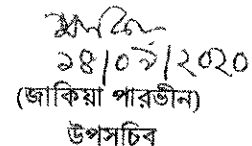 ১৪/০৯/২০২০
(জাকিয়া পারভীন)
উপসচিব